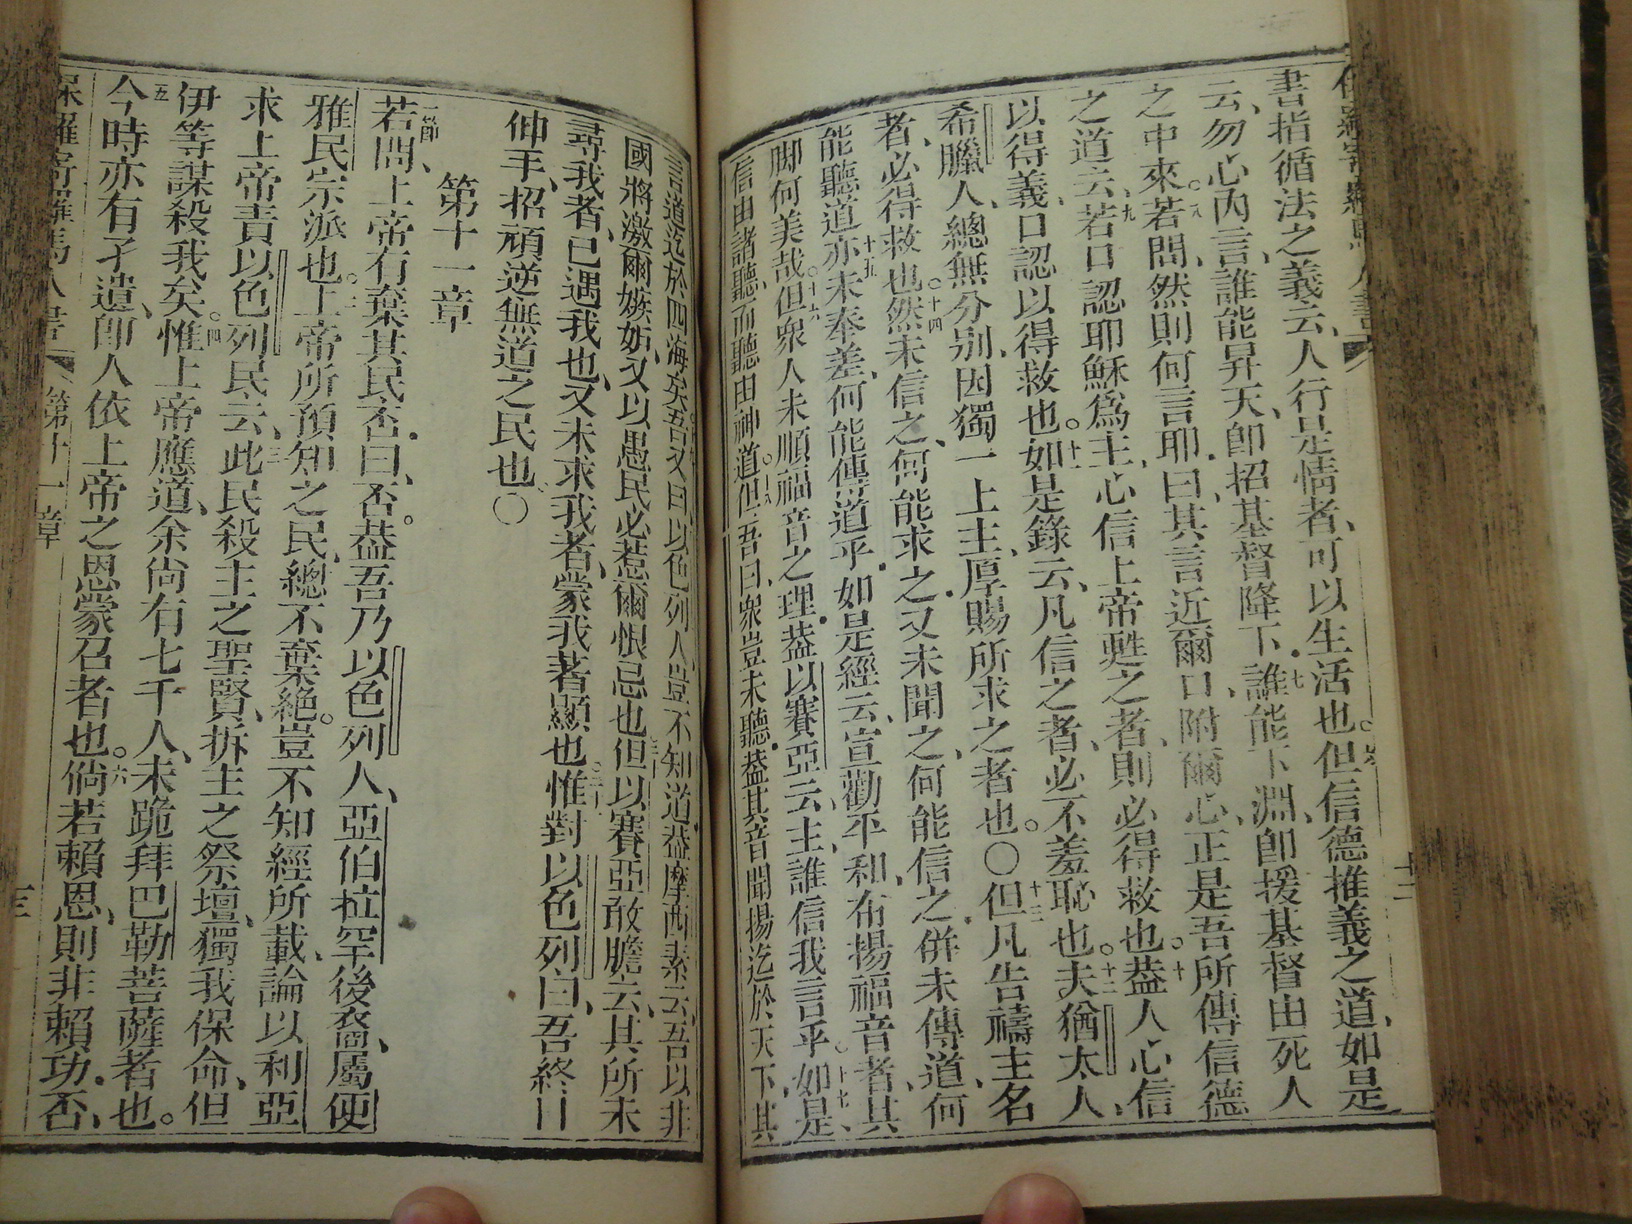 書指循法之義云、人行是情者、可以生活也。但信德推義之道、如是
云、勿心內言、誰能昇天、卽招基督降下、七誰能下淵、卽援基督由死人
之中來。八若問、然則何言耶、曰、其言近爾口、附爾心、正是吾所傳信德
之道云、九若口認耶穌爲主、心信上帝甦之者、則必得救也。十葢人心信
以得義、口認以得救也。十一如是錄云、凡信之者、必不羞恥也。十二夫猶太人、
希臘人、總無分別、因獨一上主、厚賜所求之者也。〇十三但凡告禱主名
者、必得救也。十四然未信之、何能求之、又未聞之、何能信之、併未傳道、何
能聽道、十五亦未奉差、何能傳道乎、如是經云、宣勸平和、布揚福音者、其
脚何美哉。十六但衆人未順福音之理、葢以賽亞云、主、誰信我言乎。十七如是、
信由諸聽、而聽由神道。十八但吾曰、衆豈未聽、葢其音聞揚迄於天下、其
言道迄於四海矣、吾又曰、以色列人、豈不知道、葢摩西素云、吾以非
國將激爾嫉妬、又以愚民必惹爾恨忌也、二十但以賽亞敢膽云、其所未
尋我者、已遇我也、又未求我者、蒙我著顯也。二一惟對以色列曰、吾終日
伸手、招頑逆無道之民也、〇
第十一章
一節若問、上帝有棄其民否、曰、否。葢吾乃以色列人、亞伯拉罕後裔、屬便
雅民宗派也。二上帝所預知之民、總不棄絕。豈不知經所載、論以利亞
求上帝責以色列民云、三此民殺主之聖賢、拆主之祭壇、獨我保命、但
伊等謀殺我矣。四惟上帝應道、余尙有七千人、未跪拜巴勒菩薩者也。
五今時亦有孑遺、卽人依上帝之恩蒙召者也。六倘若賴恩、則非賴功、否、
保羅寄羅馬人書
第十一章
十三